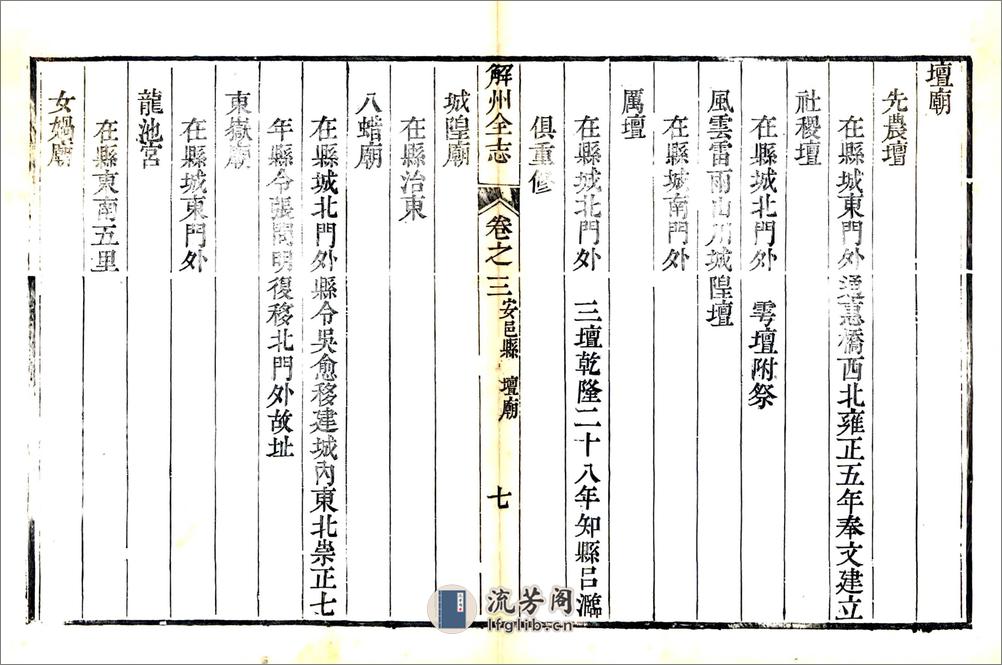 壇廟
先農壇
在縣城東門外通惠橋西北雍正五年奉文建立
社稷壇
在縣城北門外　雩壇附祭
風雲雷雨山川城隍壇
在縣城南門外
厲壇
在縣城北門外　三壇乾隆二十八年知縣呂瀶
俱重修
解州全志　卷之三　安邑縣　壇廟　七
城隍廟
在縣治東
八蜡廟
在縣城北門外縣令吳愈移建城內東北崇正七
年縣令張閏明復移北門外故址
東嶽廟
在縣城東門外
龍池宮
在縣東南五里
女媧廟
流芳阁
lfglib.cn